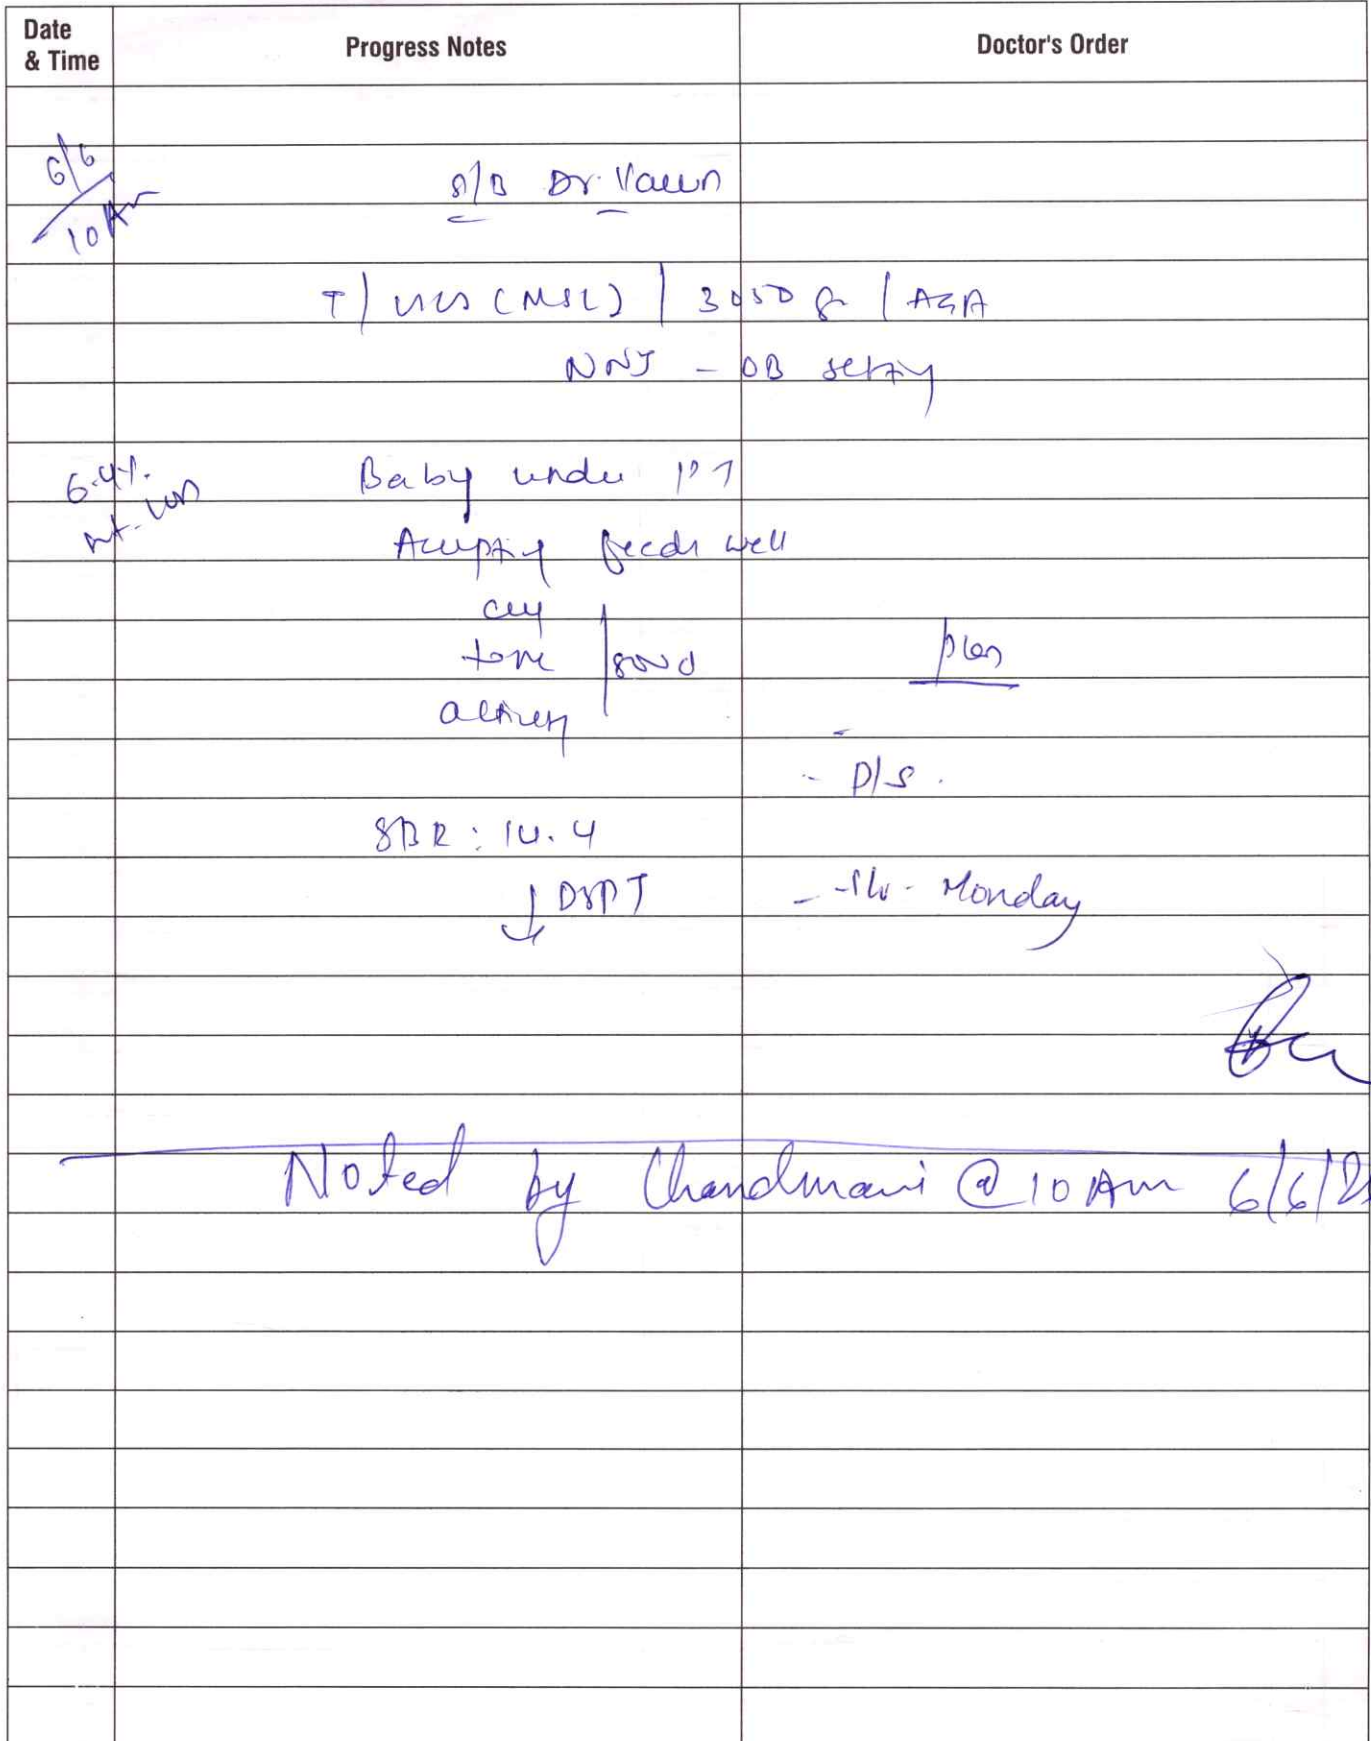 Date & Time Progress Notes Doctor's Order
6/6
10 Am
S/B Dr. Varun
T / LSCS (MSL) / 3050 g / AGA
NNJ - OB setting
6.4%
wt. loss
Baby under PT
Accepting feeds well
cry
tone good
activity
plan
- D/S.
SBR: 14.4
↓ DSPT
- Monday
Noted by Chandmani @ 10 Am 6/6/